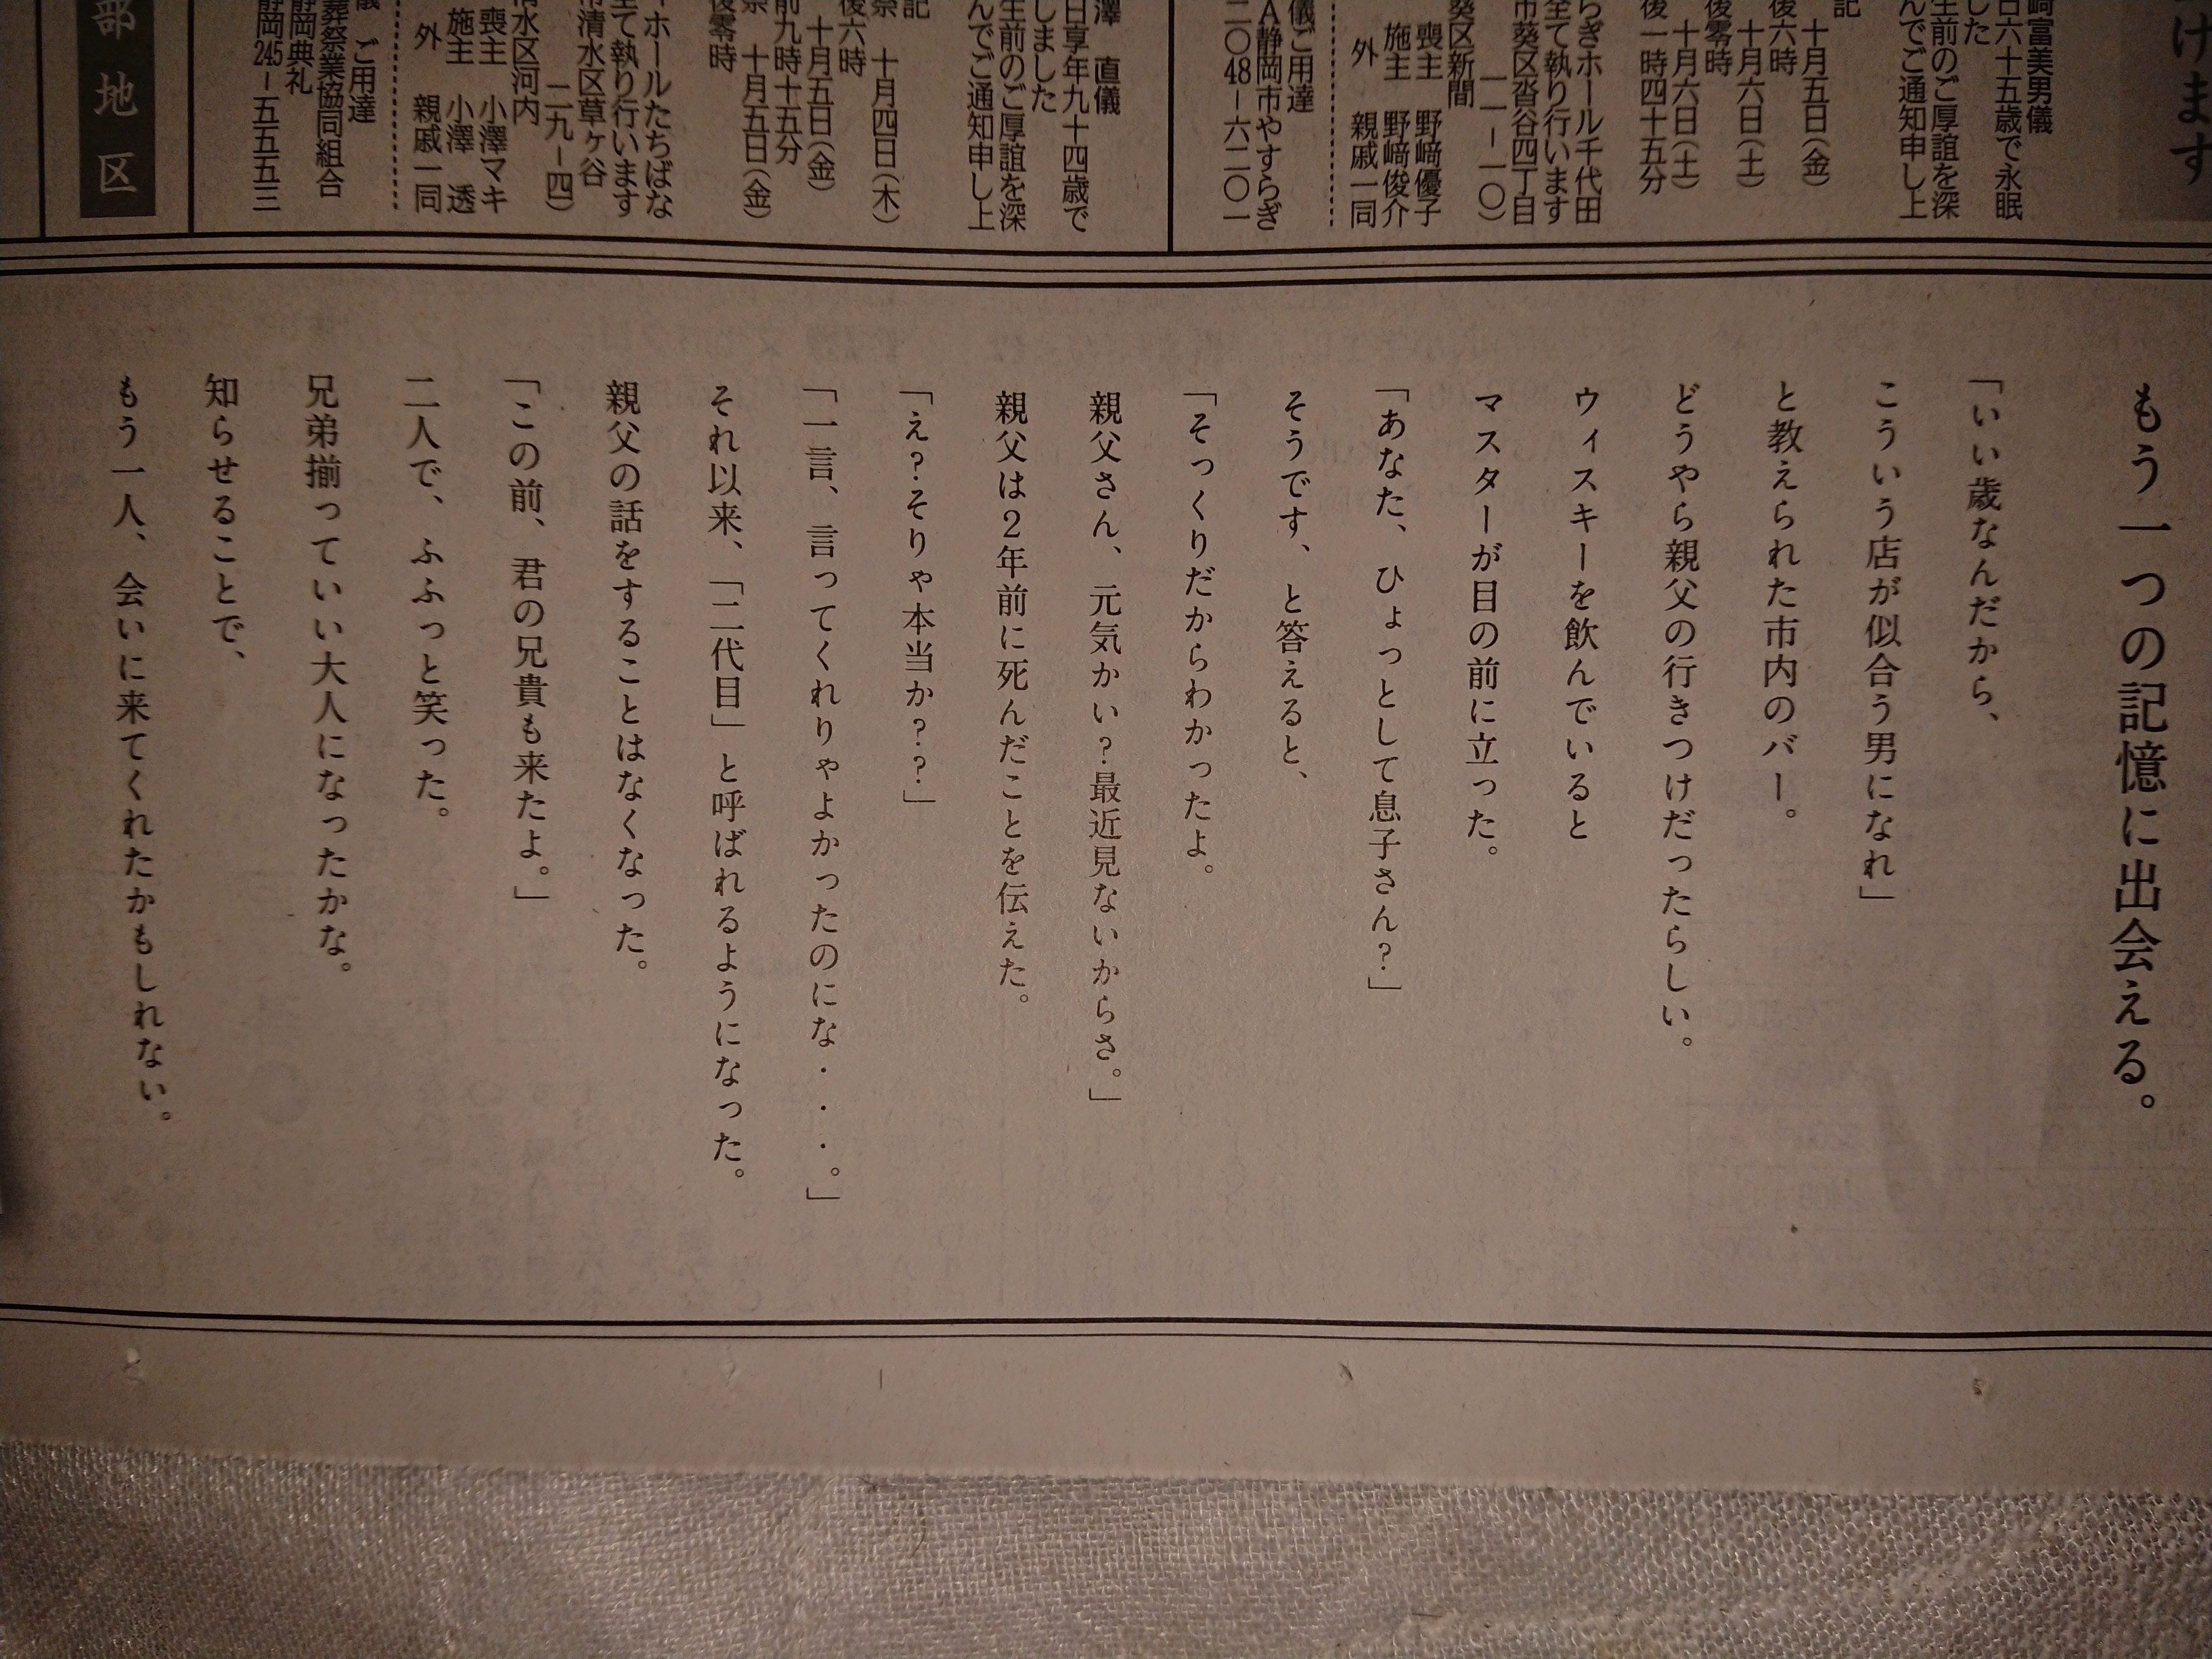 けます
崎富美男儀
日六十五歳で永眠
した
生前のご厚誼を深
んでご通知申し上
記
十月五日(金)
後六時
十月六日(土)
後零時
十月六日(土)
後一時四十五分
らぎホール千代田
全て執り行います
市葵区沓谷四丁目
一一ー一〇)
葵区新間
喪主 野﨑優子
施主 野﨑俊介
外 親戚一同
儀ご用達
A静岡市やすらぎ
二〇48ー六二〇一
澤 直儀
日享年九十四歳で
しました
生前のご厚誼を深
んでご通知申し上
記
祭 十月四日(木)
後六時
十月五日(金)
前九時十五分
祭 十月五日(金)
後零時
ホールたちばな
全て執り行います
市清水区草ヶ谷
二九ー四)
清水区河内
喪主 小澤マキ
施主 小澤 透
外 親戚一同
儀 ご用達
葬祭業協同組合
静岡典礼
静岡245ー五五五三
部地区
もう一つの記憶に出会える。
「いい歳なんだから、
こういう店が似合う男になれ」
と教えられた市内のバー。
どうやら親父の行きつけだったらしい。
ウィスキーを飲んでいると
マスターが目の前に立った。
「あなた、ひょっとして息子さん?」
そうです、と答えると、
「そっくりだからわかったよ。
親父さん、元気かい?最近見ないからさ。」
親父は2年前に死んだことを伝えた。
「え?そりゃ本当か??」
「一言、言ってくれりゃよかったのにな・・・。」
それ以来、「二代目」と呼ばれるようになった。
親父の話をすることはなくなった。
「この前、君の兄貴も来たよ。」
二人で、ふふっと笑った。
兄弟揃っていい大人になったかな。
知らせることで、
もう一人、会いに来てくれたかもしれない。